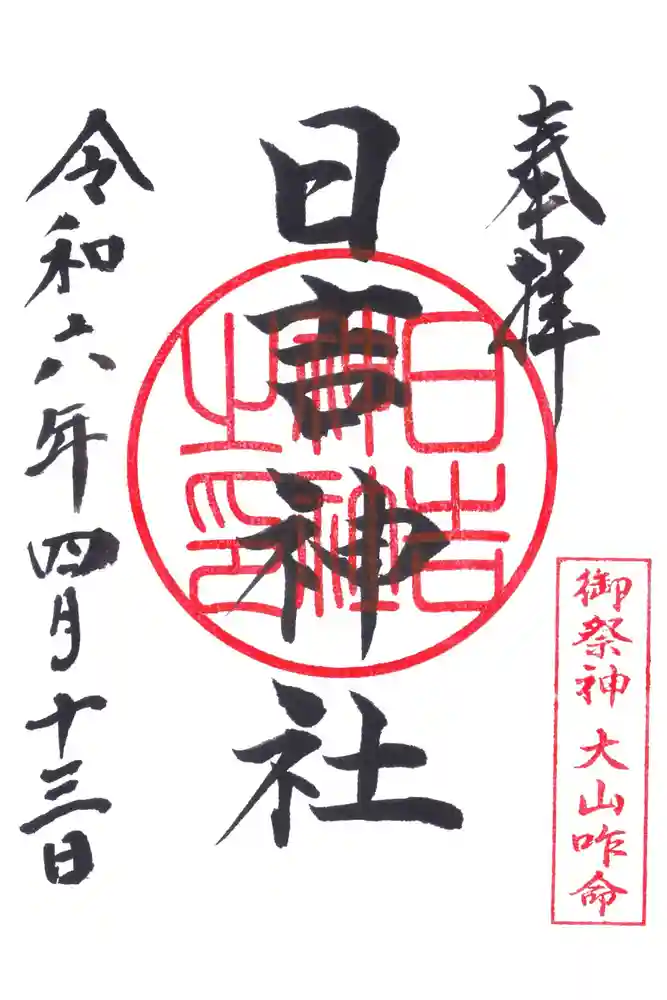 奉拝
御祭神 大山咋命
日吉神社
日吉
之印
令和六年四月十三日